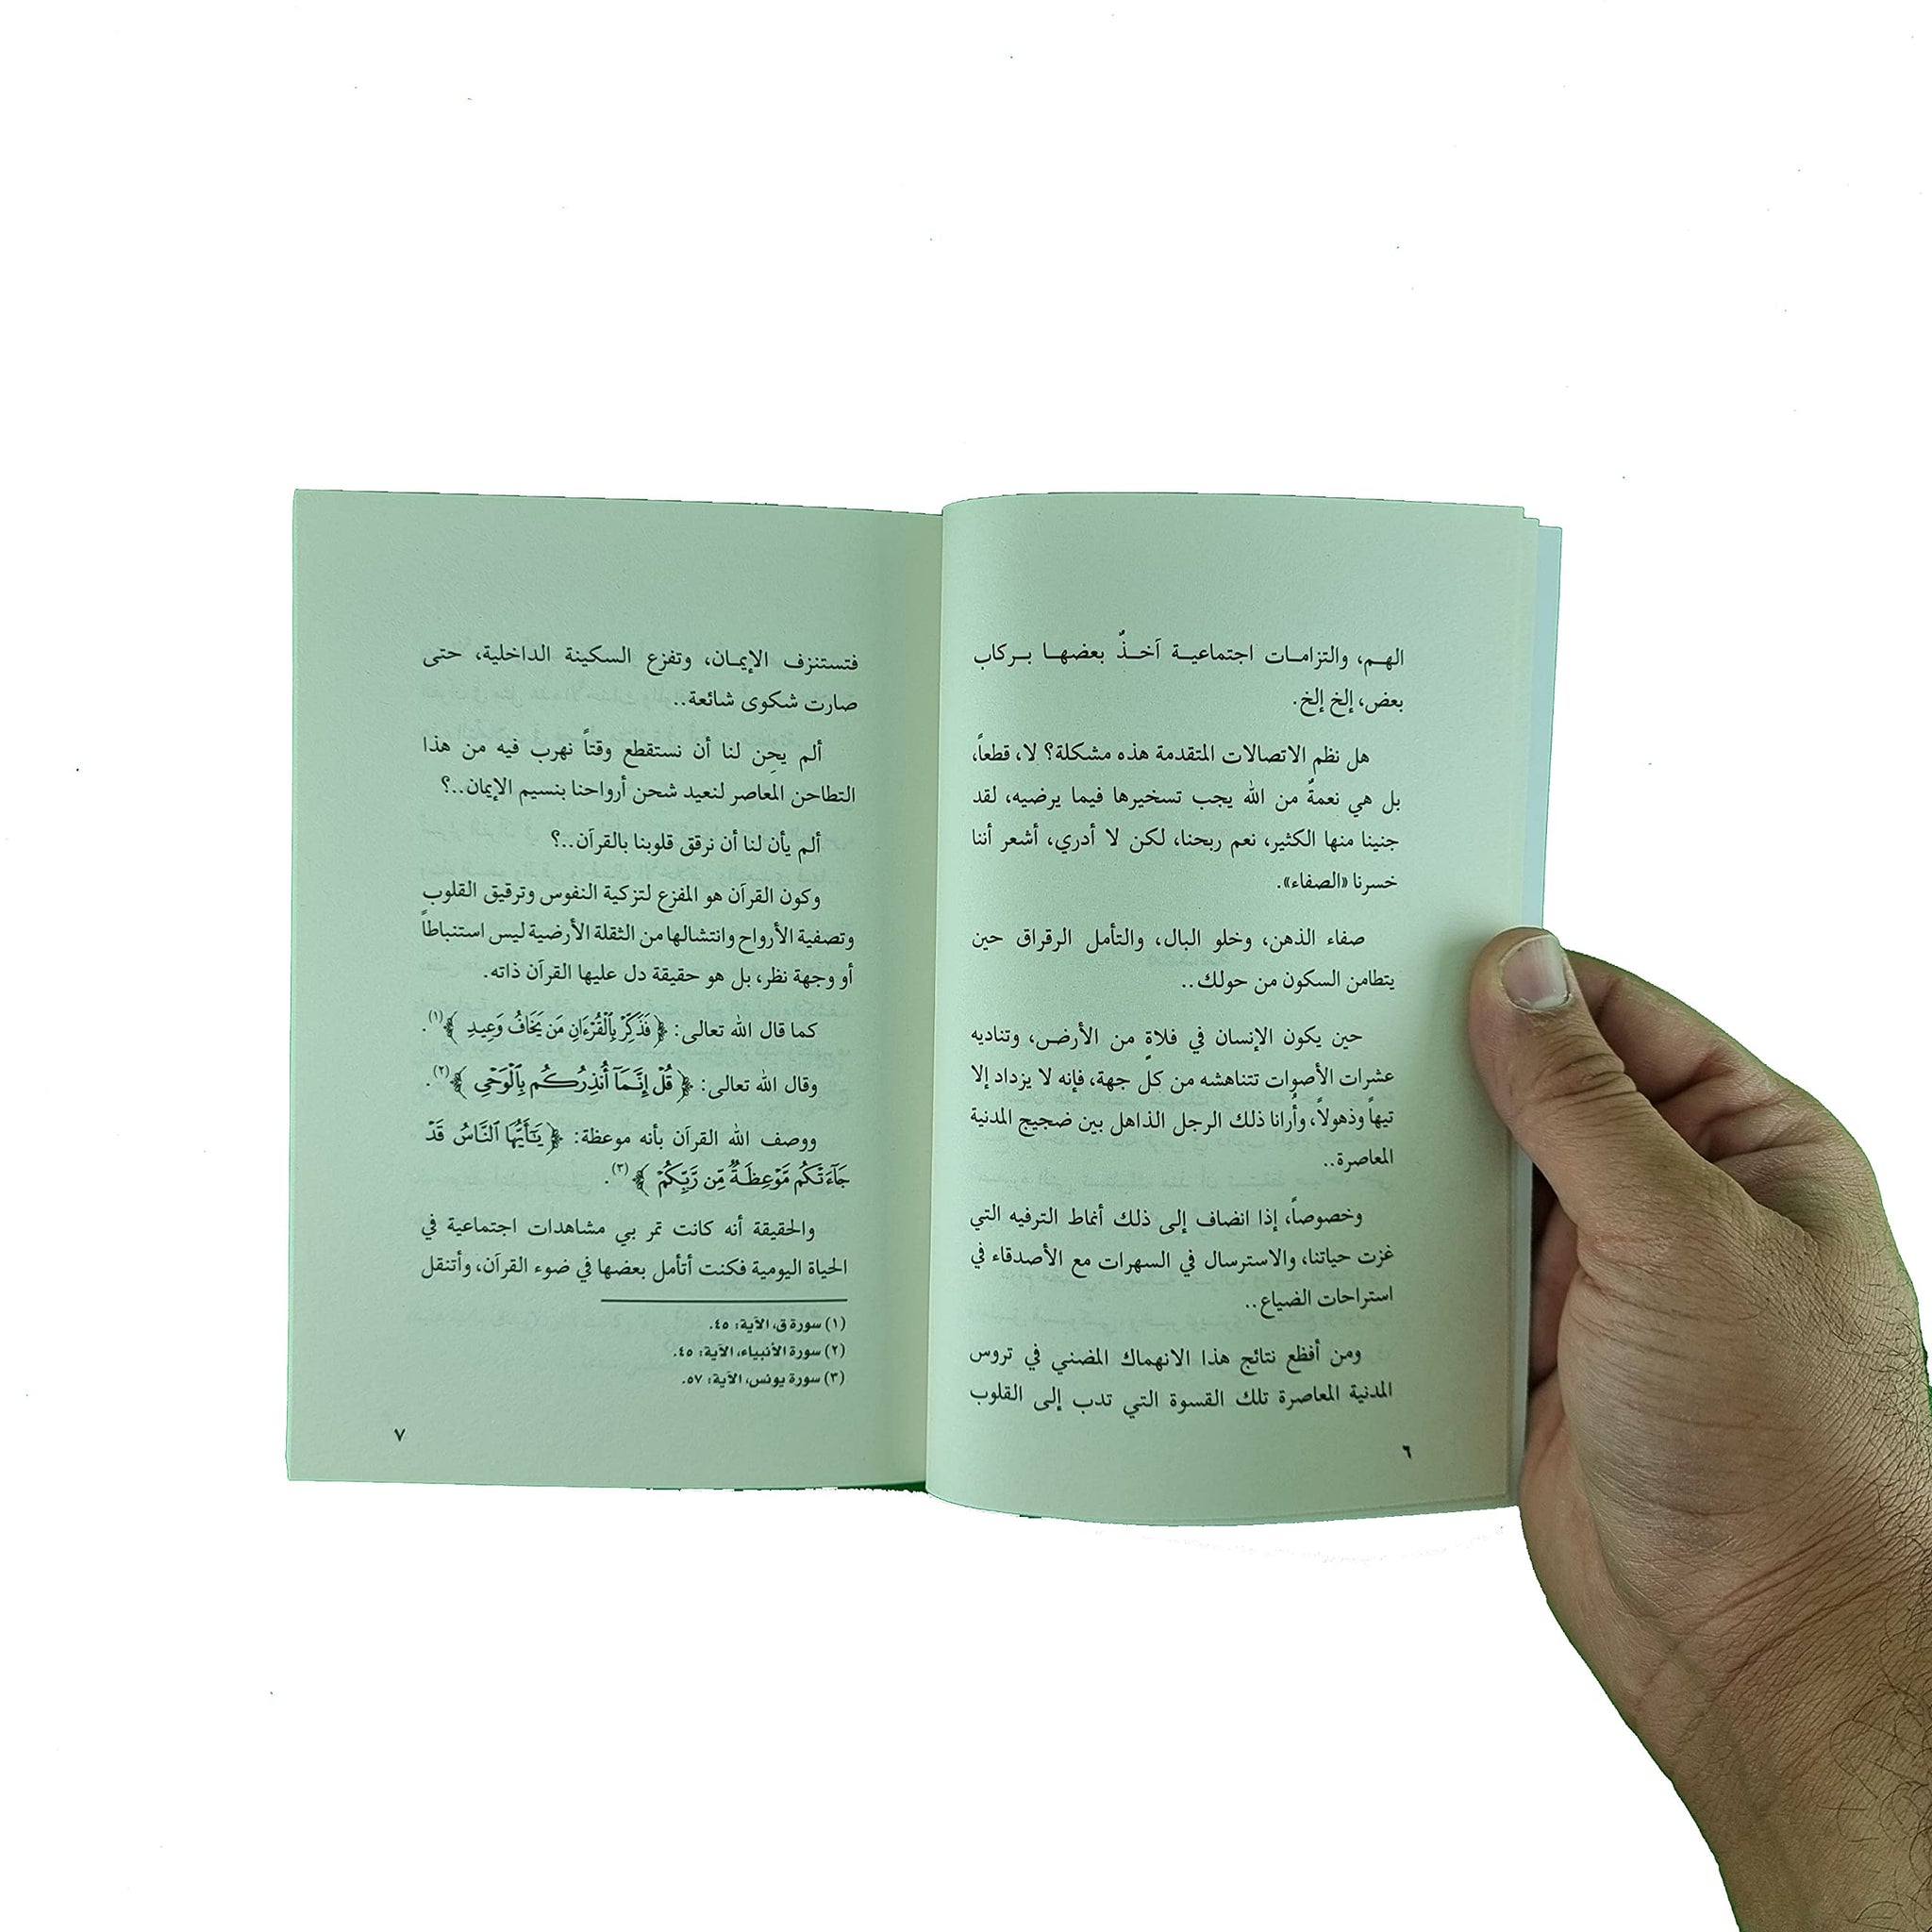 الهـم، والتزامـات اجتماعيـة آخـذٌ بعضهـا بـركاب
بعض، إلخ إلخ.
هل نظم الاتصالات المتقدمة هذه مشكلة؟ لا، قطعاً،
بل هي نعمةٌ من الله يجب تسخيرها فيما يرضيه، لقد
جنينا منها الكثير، نعم ربحنا، لكن لا أدري، أشعر أننا
خسرنا «الصفاء».
صفاء الذهن، وخلو البال، والتأمل الرقراق حين
يتطامن السكون من حولك..
حين يكون الإنسان في فلاةٍ من الأرض، وتناديه
عشرات الأصوات تتناهشه من كل جهة، فإنه لا يزداد إلا
تيهاً وذهولاً، وأُرانا ذلك الرجل الذاهل بين ضجيج المدنية
المعاصرة..
وخصوصاً، إذا انضاف إلى ذلك أنماط الترفيه التي
غزت حياتنا، والاسترسال في السهرات مع الأصدقاء في
استراحات الضياع..
ومن أفظع نتائج هذا الانهماك المضني في تروس
المدنية المعاصرة تلك القسوة التي تدب إلى القلوب
٦
فتستنزف الإيمـان، وتفزع السكينة الداخلية، حتى
صارت شكوى شائعة..
ألم يحِن لنا أن نستقطع وقتاً نهرب فيه من هذا
التطاحن المعاصر لنعيد شحن أرواحنا بنسيم الإيمان..؟
ألم يأن لنا أن نرقق قلوبنا بالقرآن..؟
وكون القرآن هو المفزع لتزكية النفوس وترقيق القلوب
وتصفية الأرواح وانتشالها من الثقلة الأرضية ليس استنباطاً
أو وجهة نظر، بل هو حقيقة دل عليها القرآن ذاته.
كما قال الله تعالى: ﴿فَذَكِّرْ بِٱلْقُرْءَانِ مَن يَخَافُ وَعِيدِ﴾(١).
وقال الله تعالى: ﴿قُلْ إِنَّمَآ أُنذِرُكُم بِٱلْوَحْىِ﴾(٢).
ووصف الله القرآن بأنه موعظة: ﴿يَـٰٓأَيُّهَا ٱلنَّاسُ قَدْ
جَآءَتْكُم مَّوْعِظَةٌ مِّن رَّبِّكُمْ﴾(٣).
والحقيقة أنه كانت تمر بي مشاهدات اجتماعية في
الحياة اليومية فكنت أتأمل بعضها في ضوء القرآن، وأتنقل
(١) سورة ق، الآية: ٤٥.
(٢) سورة الأنبياء، الآية: ٤٥.
(٣) سورة يونس، الآية: ٥٧.
٧